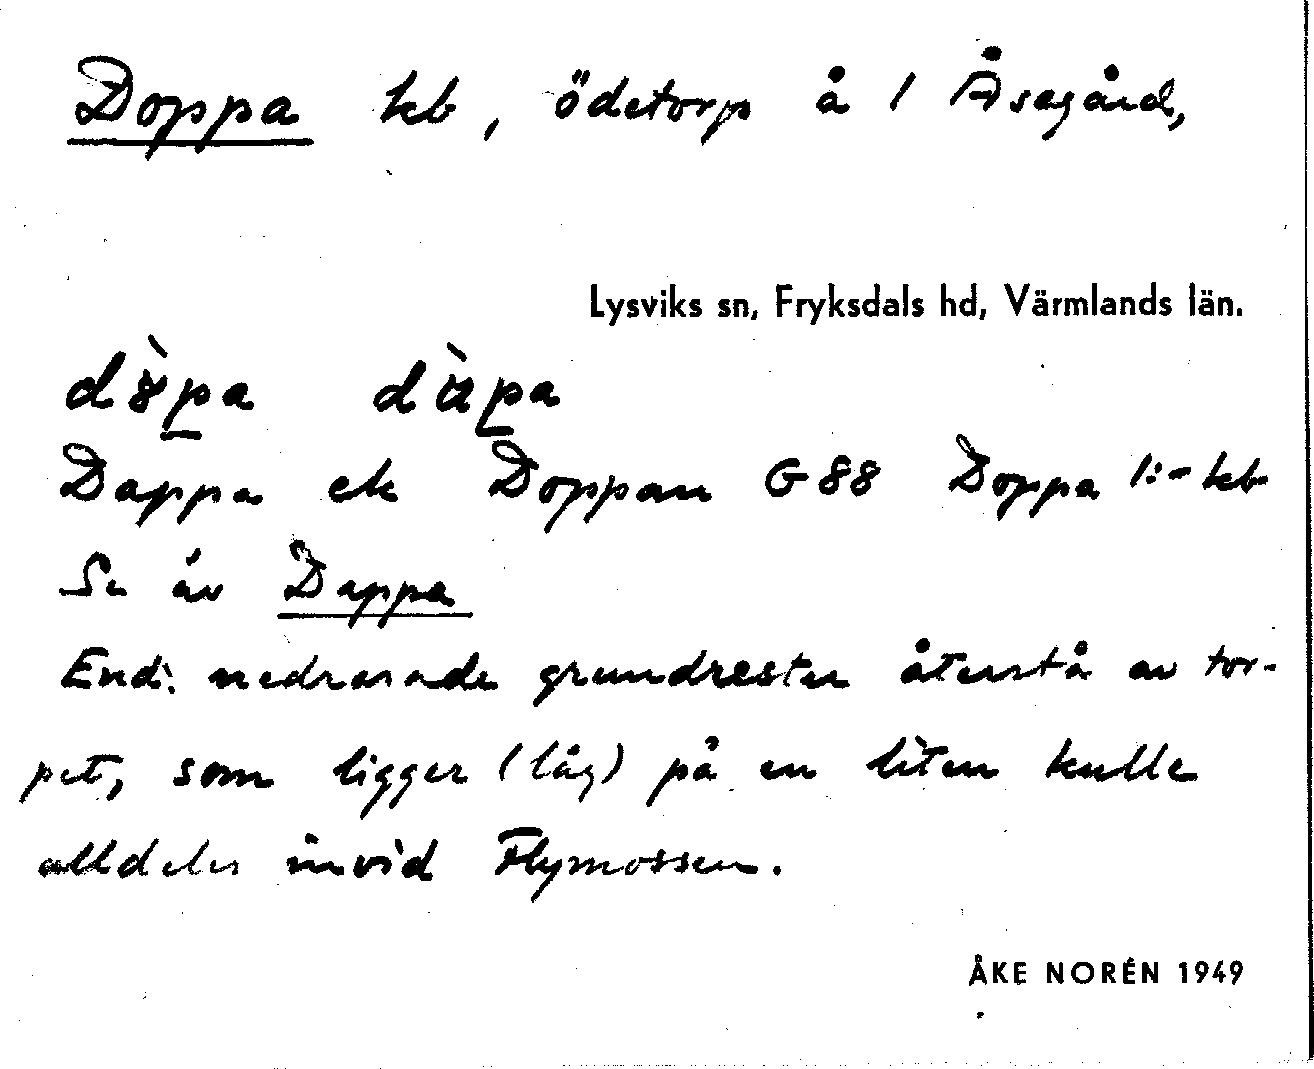 Doppa kb, ödetorp å 1 Åsegård,
Lysviks sn, Fryksdals hd, Värmlands län.
d`pa dàpa
Dappa ek Doppan G 88 Doppa 1:- kb
Se äv Dappa
End. nedrasade grundrester återstå av tor-
pet, som ligger (låg) på en liten kulle
alldeles invid Flymossen.
ÅKE NORÉN 1949